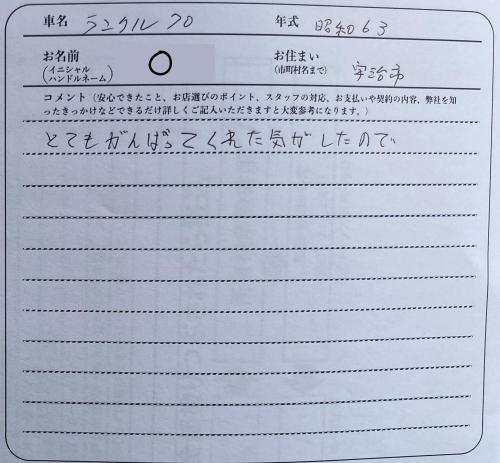 車名 ランクル70 年式 昭和63
お名前 (イニシャル ハンドルネーム) O お住まい (市町村名まで) 宇治市
コメント（安心できたこと、お店選びのポイント、スタッフの対応、お支払いや契約の内容、弊社を知
ったきっかけなどできるだけ詳しくご記入いただきますと大変参考になります。）
とてもがんばってくれた気がしたので